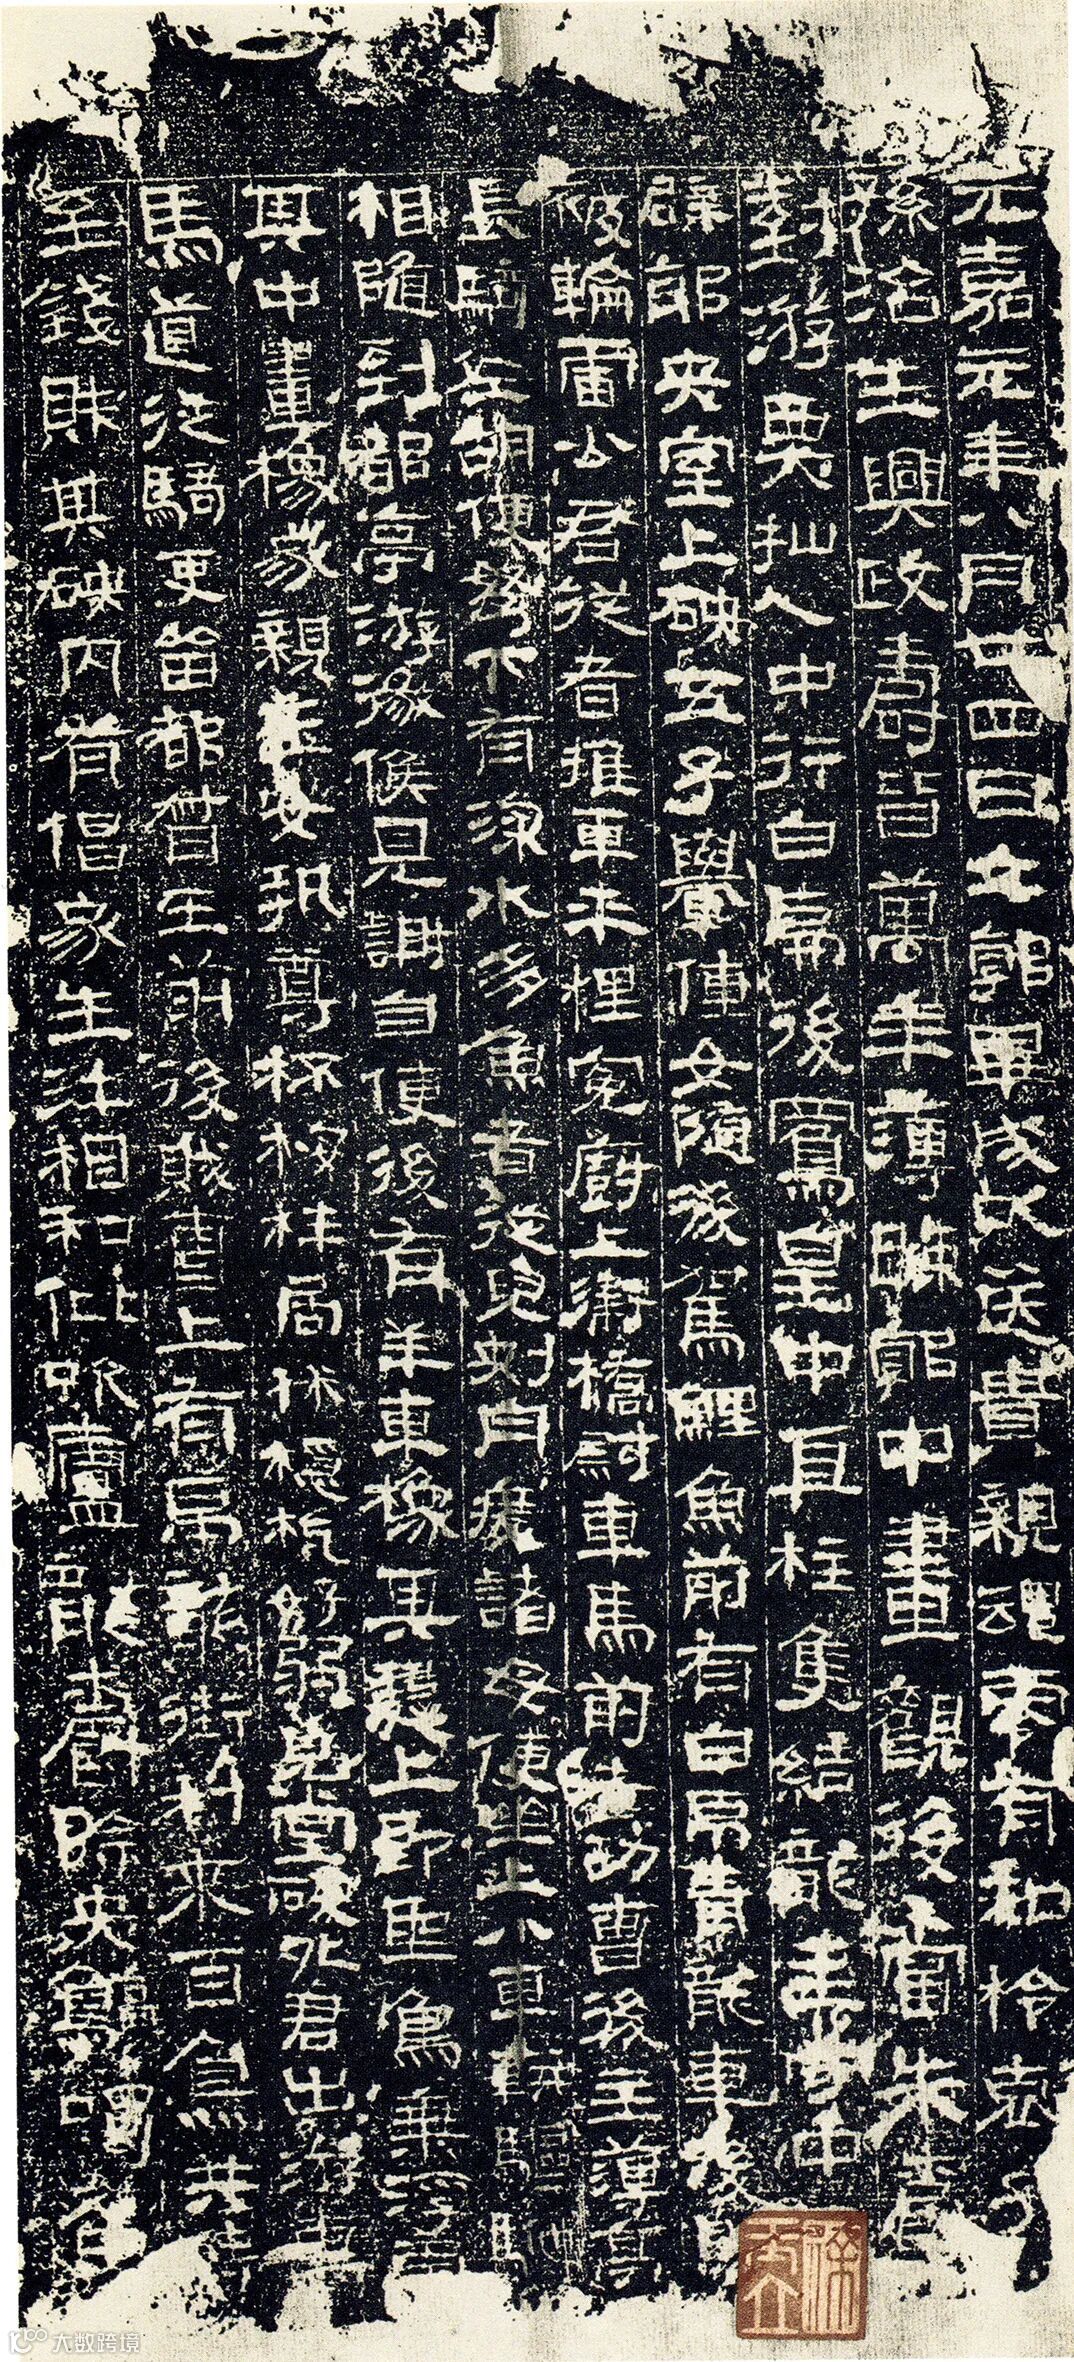 元嘉元年八月廿四日立郭畢成以送貴親魂零有知柃哀子
孫治生興政壽皆萬年薄踈郭中畫觀後當朱爵
對游戲仙人中行白虎後鳳皇中直柱隻結龍主守中
辟邪央室上硤五子轝僮女隨後駕鯉魚前有白虎青龍車後即
被輪雷公君從者推車平梩冤廚上衛橋尉車馬前者功曹後主簿亭
長騎佐胡使弩下有深水多魚者從兒刺舟渡諸母使坐上小車軿驅馳
相隨到都亭游徼候見謝自便後有羊車橡其慧上即聖鳥乘浮雲
其中畫橡家親玉女執尊杯桉柈局沐穩杬好弱貌堂硤外君出游
車馬道從騎吏留都督在前後賊曹上有虎龍銜利來百鳥共持
至錢財其硤內有倡家生汙相和仳吹廬龍爵除央鶴啣魚